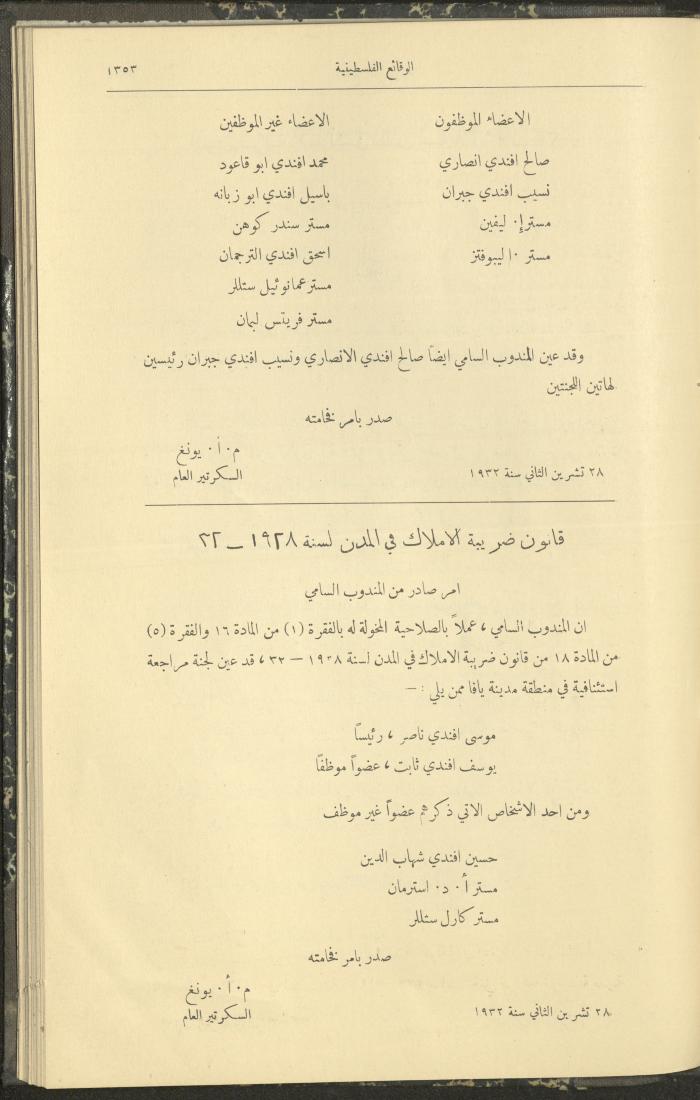 الوقائع الفلسطينية ١٣٥٣
الاعضاء الموظفون
صالح افندي انصاري
نسيب افندي جبران
مستر إ٠ ليفين
مستر ا٠ ليبوفتز
الاعضاء غير الموظفين
محمد افندي ابو قاعود
باسيل افندي ابو زبانه
مستر سندر كوهن
اسحق افندي الترجمان
مستر عمانوئيل ستللر
مستر فريتس لبمان
وقد عين المندوب السامي ايضاً صالح افندي الانصاري ونسيب افندي جبران رئيسين
لهاتين اللجنتين
صدر بامر فخامته
م٠ أ٠ يونغ
السكرتير العام
٢٨ تشرين الثاني سنة ١٩٣٢
قانون ضريبة الاملاك في المدن لسنة ١٩٢٨ – ٣٢
امر صادر من المندوب السامي
ان المندوب السامي ، عملاً بالصلاحية المخولة له بالفقرة (١) من المادة ١٦ والفقرة (٥)
من المادة ١٨ من قانون ضريبة الاملاك في المدن لسنة ١٩٢٨ – ٣٢ ، قد عين لجنة مراجعة
استئنافية في منطقة مدينة يافا ممن يلي : –
موسى افندي ناصر ، رئيساً
يوسف افندي ثابت ، عضواً موظفاً
ومن احد الاشخاص الاتي ذكرهم عضواً غير موظف
حسين افندي شهاب الدين
مستر أ٠ د٠ استرمان
مستر كارل ستللر
صدر بامر فخامته
م٠ أ٠ يونغ
السكرتير العام
٢٨ تشرين الثاني سنة ١٩٣٢